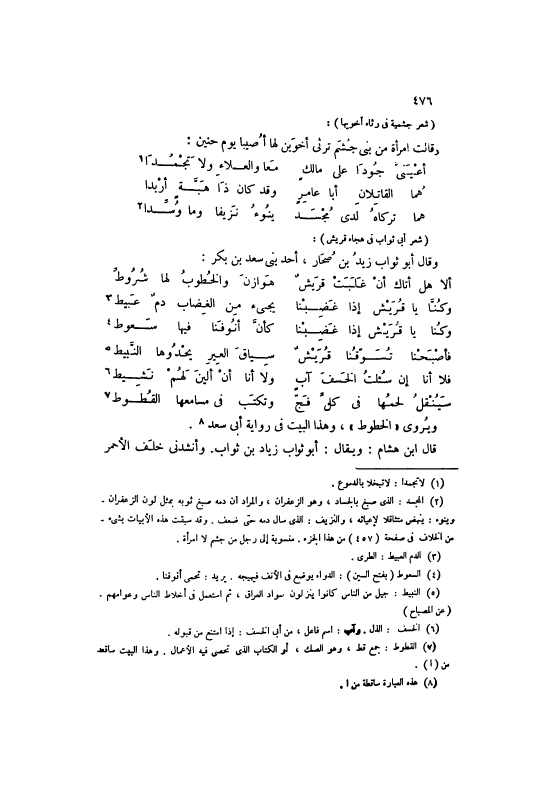 ٤٧٦
( شعر جشمية فى رثاء أخويها ) :
وقالت امرأة من بنى جُشَم ترثى أخوَين لها أُصيبا يوم حنين :
أعَيْنَىَّ جُودَا على مالك مَعا والعَلاءِ ولا تَجْمُدَا١
هُما القاتلانِ أبا عامرٍ وقد كان ذَا هَبَّةٍ أرْبدا
هما تركاهُ لدى مُجْسَدٍ ينُوءُ نَزيفا وما وُسِّدا٢
( شعر أبى ثواب فى هجاء قريش ) :
وقال أبو ثواب زيدُ بن صُحار ، أحد بنى سعد بن بكر :
ألا هل أتاك أنْ غَلَبَتْ قريشٌ هَوازنَ والخُطوبُ لها شُرُوطُ
وكُنَّا يا قُرَيْش إذا غَضِبْنا يجىء مِن الغِضاب دمٌ عَبيط٣
وكنا يا قُرَيْش إذا غَضِبْنا كأنَّ أنُوفَنا فيها سَعوط٤
فأصْبَحْنا تُسَوّقنا قُرَيْشٌ سِياقَ العِير يَحْدُوها النَّبيط٥
فلا أنا إن سُئلتُ الخَسفَ آبٍ ولا أنا أنْ ألينَ لَهُمْ نَشِيط٦
سَيُنْقلُ لحمُها فى كلّ فَجّ وتكتَب فى مسامعها القُطُوط٧
ويُروى « الخطوط » ، وهذا البيت فى رواية أبى سعد ٨ .
قال ابن هشام : ويقال : أبو ثواب زياد بن ثواب. وأنشدنى خلَف الأحمر
(١) لاتجمدا : لاتبخلا بالدموع .
(٢) المجسد : الذى صبغ بالجساد ، وهو الزعفران ، والمراد أن دمه صبغ ثوبه بمثل لون الزعفران .
وينوء : ينهض متثاقلا لإعيائه ، والنزيف : الذى سال دمه حتى ضعف . وقد سبقت هذه الأبيات بشىء -
من الخلاف فى صفحة (٤٥٧) من هذا الجزء. منسوبة إلى رجل من جشم لا امرأة .
(٣) الدم العبيط : الطرى .
(٤) السعوط (بفتح السين) : الدواء يوضع فى الأنف فيهيجه . يريد : تحمى أنوفنا .
(٥) النبيط : جيل من الناس كانوا ينزلون سواد العراق ، ثم استعمل فى أخلاط الناس وعوامهم .
(عن المصباح)
(٦) الخسف : الذل . وآب : اسم فاعل ، من أبى الخسف : إذا امتنع من قبوله .
(٧) القطوط : جمع قط ، وهو الصك ، أو الكتاب الذى تحصى فيه الأعمال . وهذا البيت ساقط
من (١) .
(٨) هذه العبارة ساقطة من ا .